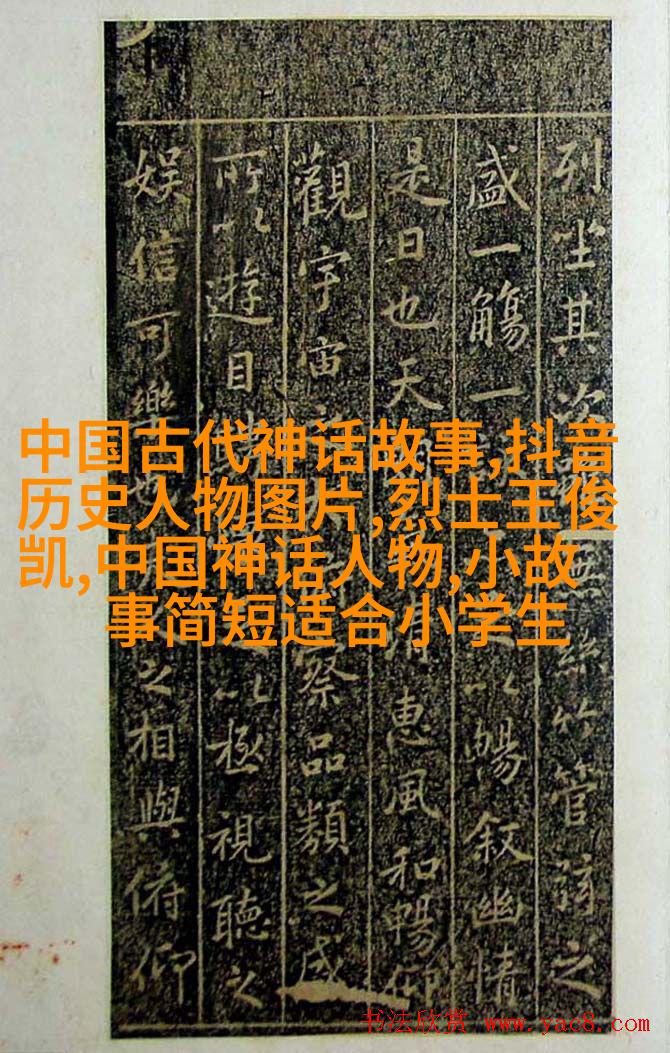 列坐其無絲竹管弦之
盛一觴一以暢叙幽情
是日也天清惠風和暢仰
觀宇宙之察品類之盛
所以遊目以極視聽之
娱信可樂之相與俯仰
中国古代神话故事,抖音
历史人物图片,烈士王俊
凯,中国神话人物,小故
事简短适合小学生
书法欣赏 www.yac8.com